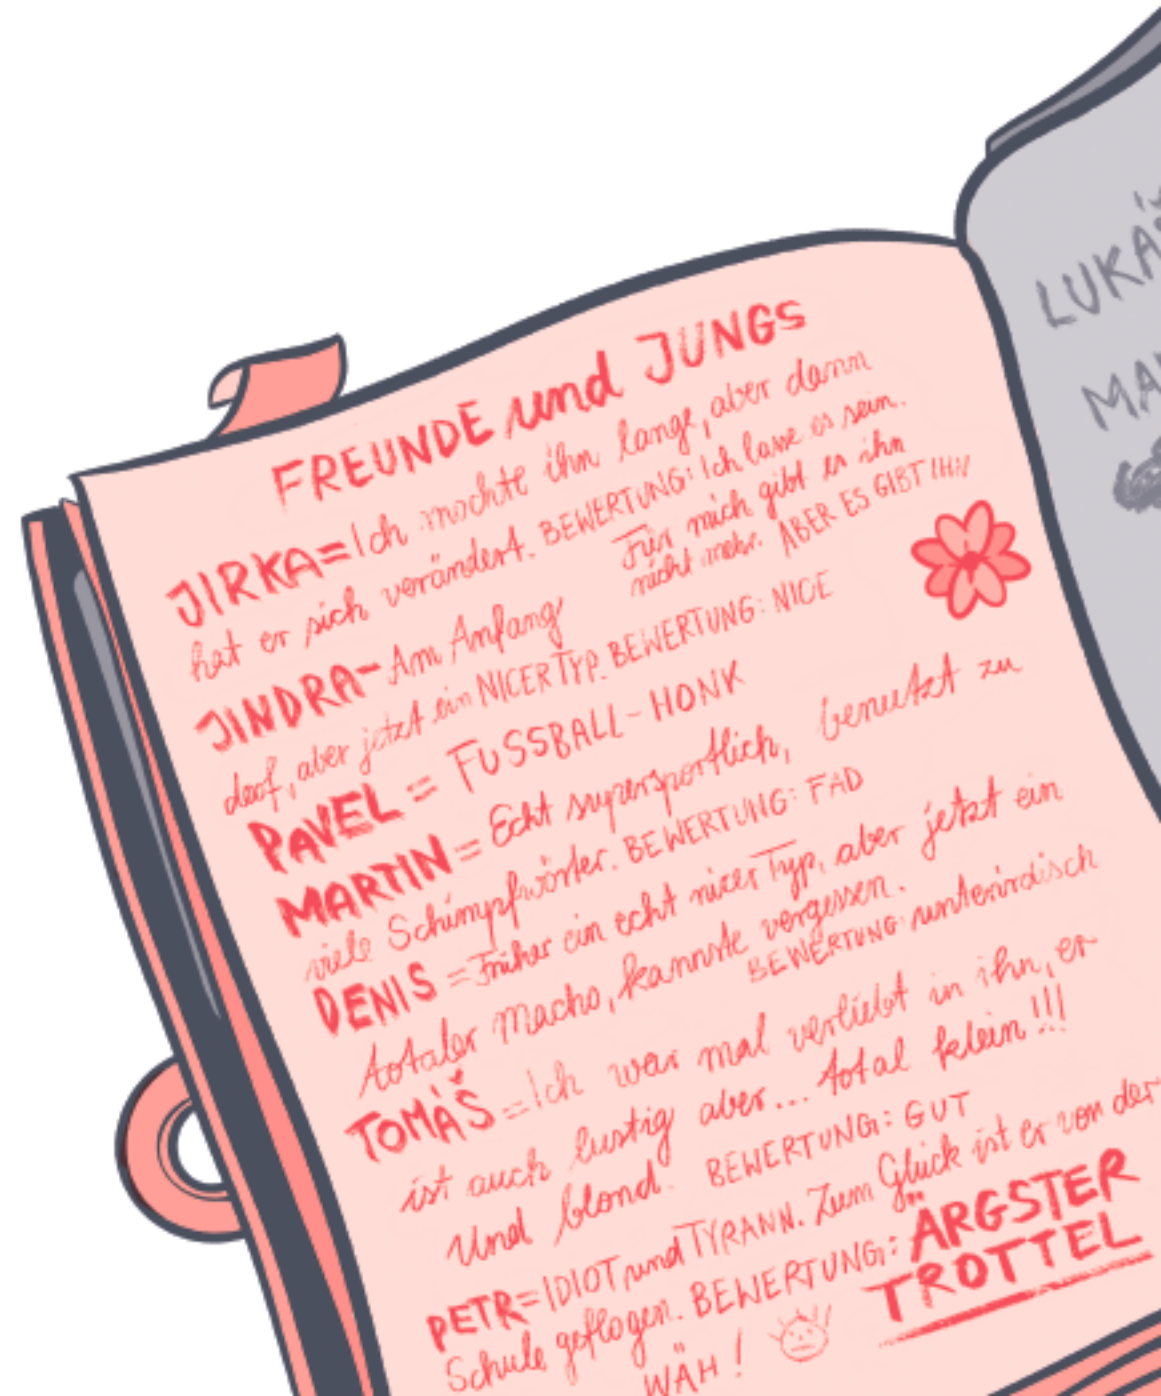 FREUNDE und JUNGS
JIRKA=Ich mochte ihn lange, aber dann
hat er sich verändert. BEWERTUNG: Ich lasse es sein.
Für mich gibt es ihn
nicht mehr. ABER ES GIBT IHN
JINDRA-Am Anfang
doof, aber jetzt ein NICER TYP. BEWERTUNG: NICE
PAVEL = FUSSBALL-HONK
MARTIN = Echt supersportlich, benutzt zu
viele Schimpfwörter. BEWERTUNG: FAD
DENIS = Früher ein echt nicer Typ, aber jetzt ein
totaler Macho, kannste vergessen.
BEWERTUNG: unterirdisch
TOMÁŠ = Ich war mal verliebt in ihn, er
ist auch lustig aber... total klein!!!
Und blond. BEWERTUNG: GUT
PETR=IDIOT und TYRANN. Zum Glück ist er von der
Schule geflogen. BEWERTUNG: ÄRGSTER
TROTTEL
WÄH!